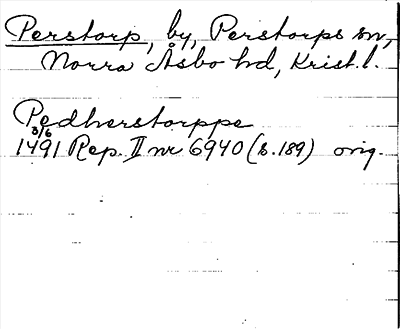 Perstorp, by, Perstorps sn,
Norra Åsbo hd, Krist. l.
Pedherstorppe
3/6
1491 Rep. II nr 6940 (s. 189) orig.